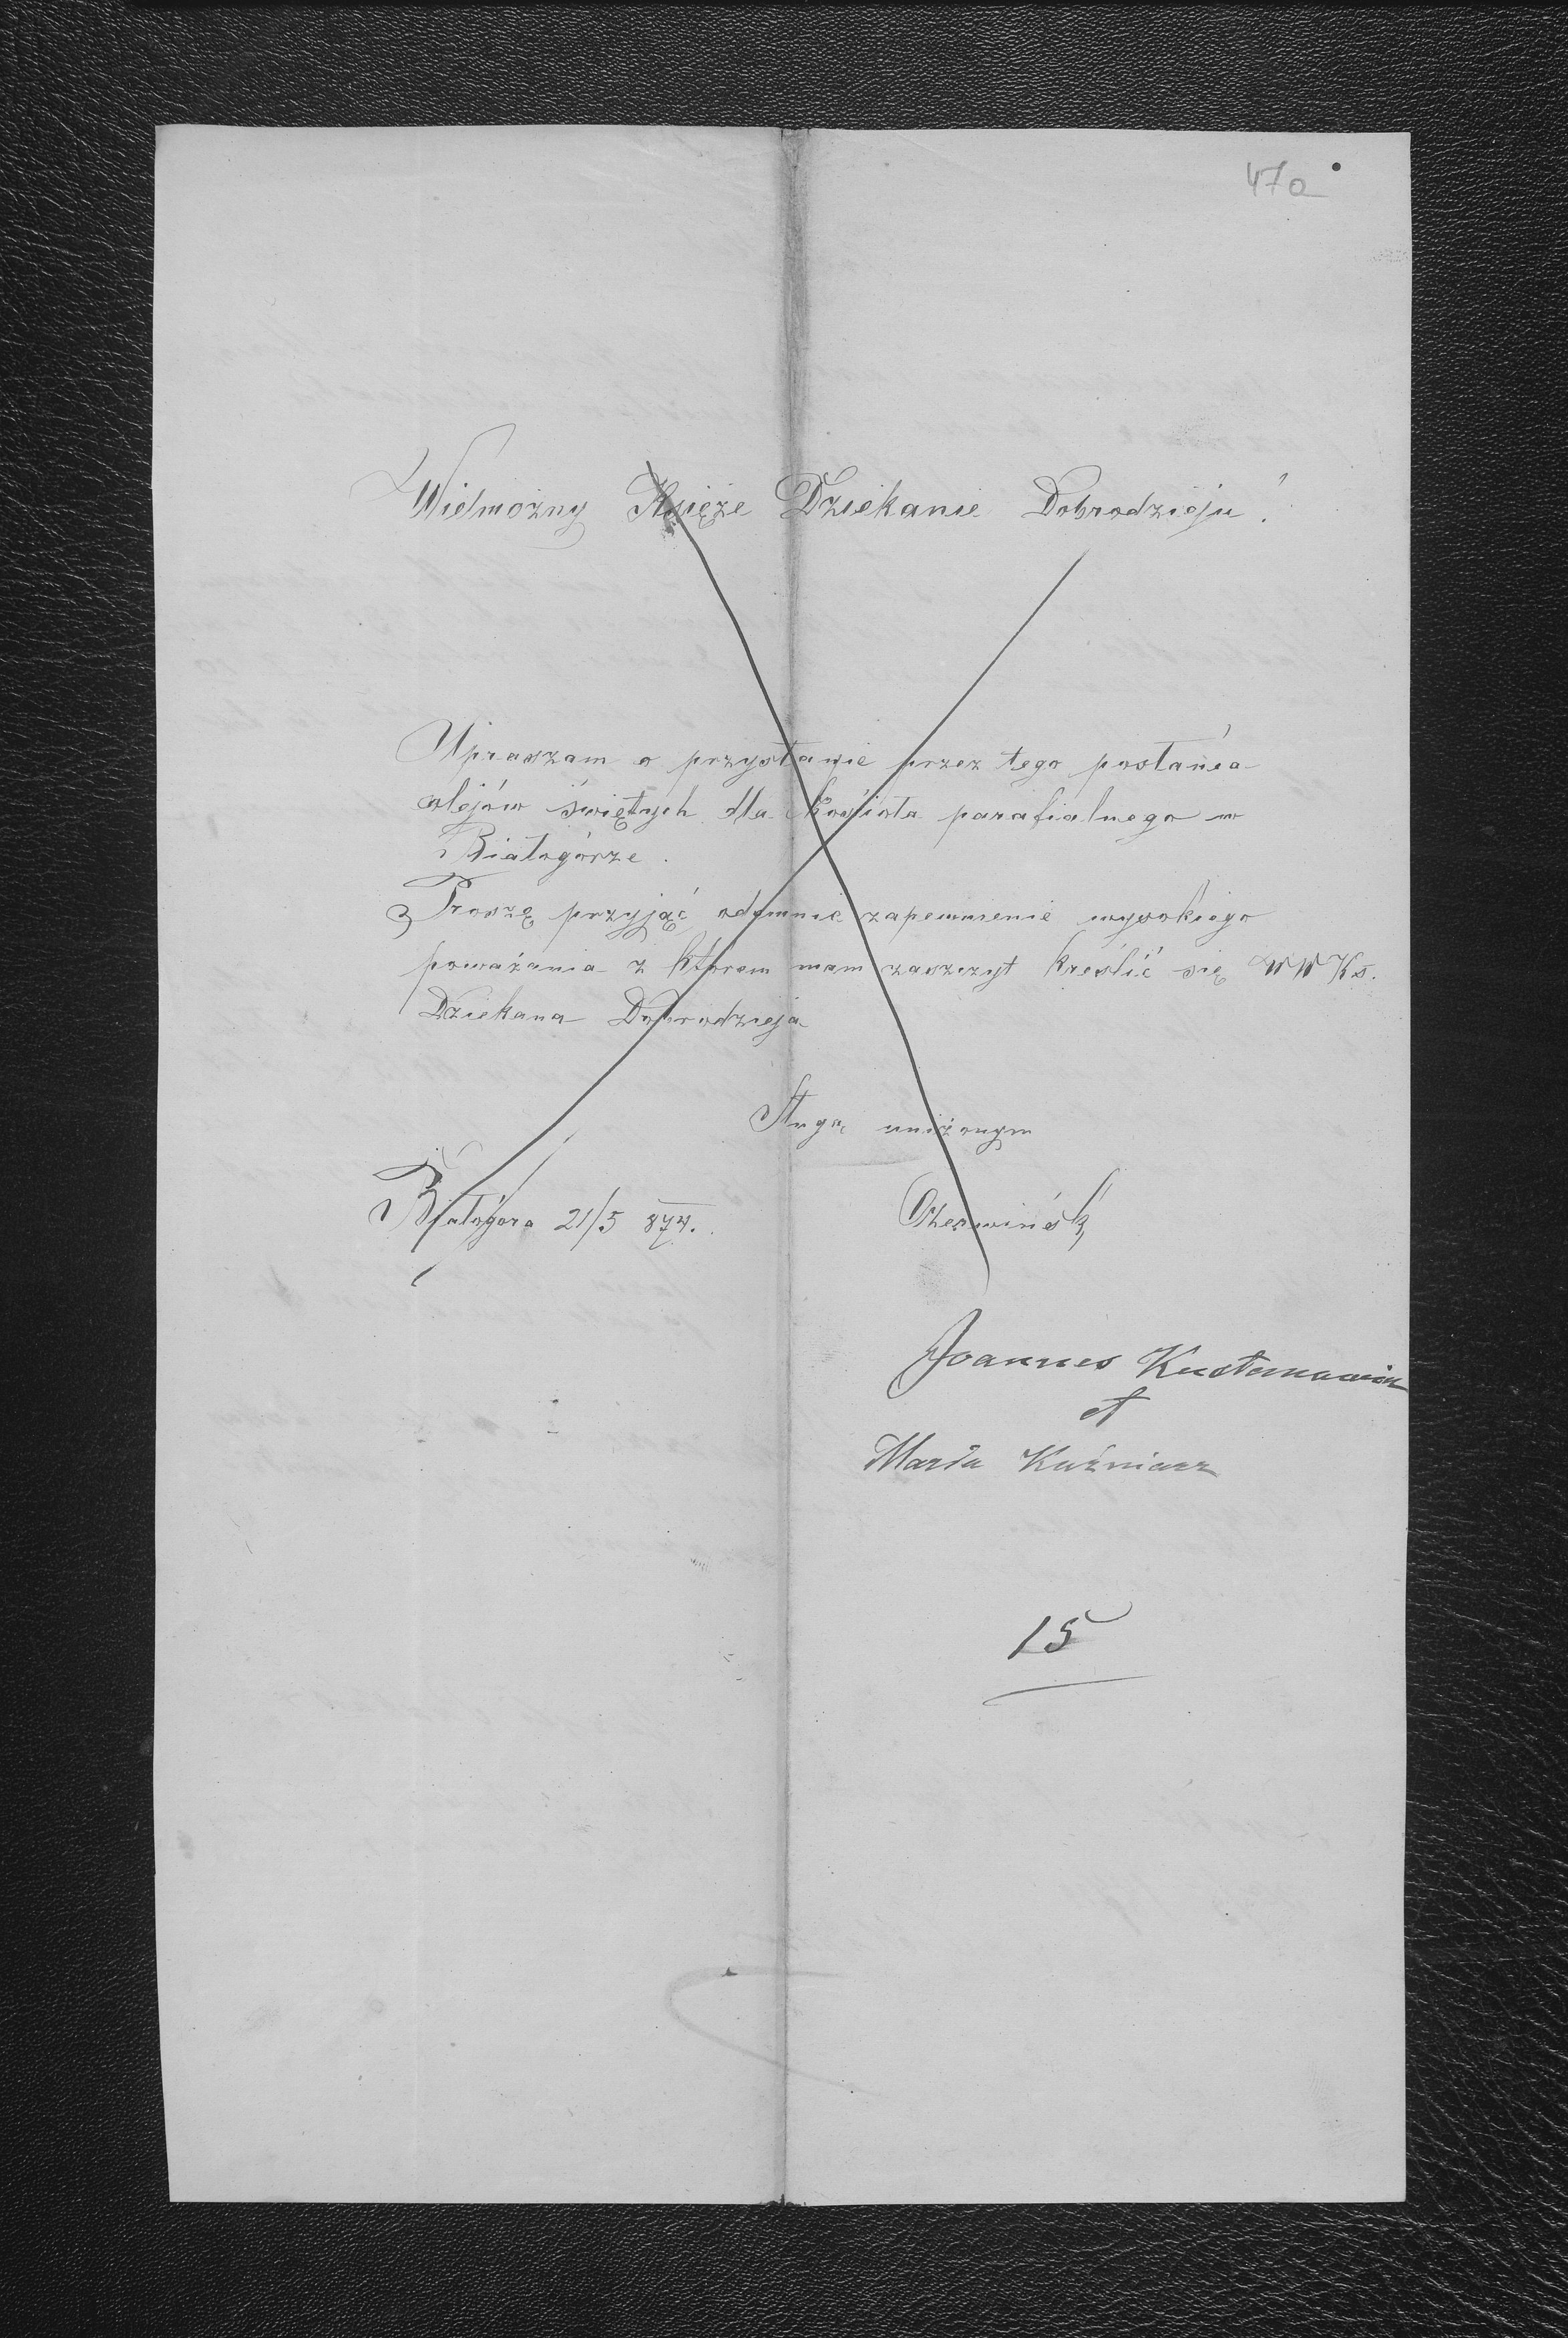 47a
Wielmożny Księże Dziekanie Dobrodzieju!
Upraszam o przysłanie przez tego posłańca
olejów świętych dla kościoła parafialnego w
Białogórze.
Proszę przyjąć odemnie zapewnienie wysokiego
poważania z którem mam zaszczyt kreślić się WW Ks.
Dziekana Dobrodzieja
Sługą uniżonym
Białogóra 21/5 874.
Czerwiński
Joannes
et
Maria Kuźniarz
15